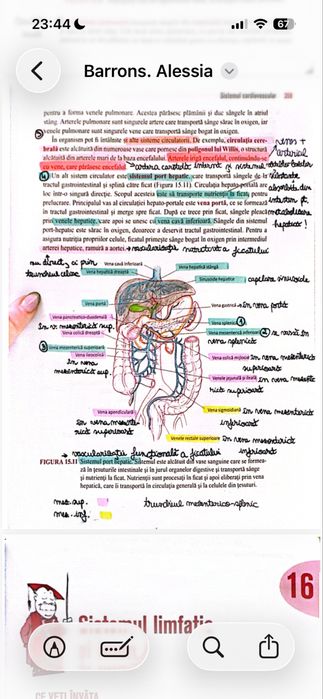 23:44
67
Barrons. Alessia
Sistemul cardiovascular
pentru a forma venele pulmonare. Acestea părăsesc plămânii și duc sângele în atriul
stâng. Arterele pulmonare sunt singurele artere care transportă sânge sărac în oxigen, iar
venele pulmonare sunt singurele vene care transportă sânge bogat în oxigen.
În organism pot fi întâlnite și alte sisteme circulatorii. De exemplu, circulația cere-
brală este alcătuită din numeroase vase care pornesc din poligonul lui Willis, o structură
alcătuită din arterele mari de la baza encefalului. Arterele irigă encefalul, continuându-se
cu vene, care părăsesc encefalul.
Un alt sistem circulator este sistemul port hepatic, care transportă sângele de la
tractul gastrointestinal și splină către ficat (Figura 15.11). Circulația hepato-portală are
loc într-o singură direcție. Scopul acesteia este să transporte nutrienții la ficat, pentru
prelucrare. Principalul vas al circulației hepato-portale este vena portă, ce se formează
în tractul gastrointestinal și merge spre ficat. După ce trece prin ficat, sângele pleacă
prin venele hepatice, care apoi se unesc cu vena cavă inferioară. Sângele din sistemul
port-hepatic este sărac în oxigen, deoarece a deservit tractul gastrointestinal. Pentru a
asigura nutriția propriilor celule, ficatul primește sânge bogat în oxigen prin intermediul
arterei hepatice, ramură a aortei
→ vascularizația nutritivă a ficatului
trunchiul celiac
Vena cavă inferioară
Vena hepatică dreaptă
Vena hepatică stângă
Sinusoide hepatice
capilare sinusoide
Vena portă
Vena gastrică
în vena portă
Vena pancreatico-duodenală
în v. mezenterică sup.
Vena colică dreaptă
Vena splenică
Vena mezenterică inferioară
vena splenică
Vena mezenterică superioară
Vena ileocolică
în vena
mezenterică sup.
Vena colică mijlocie
în vena mezenterică
superioară
Venele jejunală și ileală
în vena mezente
rică superioară
Vena apendiculară
în vena mezente
rică superioară
Vena sigmoidiană
în vena mezenterică
inferioară
Venele rectale superioare
în vena mezenterică
inferioară
→ vascularizația funcțională a ficatului
FIGURA 15.11 Sistemul port hepatic. Sistemul este alcătuit din vase sanguine care se formea-
ză în țesuturile intestinale și în jurul organelor digestive și transportă sânge
și nutrienți la ficat. Nutrienții sunt procesați în ficat și apoi eliberați prin vena
hepatică, care îi transportă în circulația generală și la celulele din țesuturi.
mez. sup.
mez. inf.
trunchiul mezenterico-splenic
16
Sistemul limfatic
CE VEȚI ÎNVĂȚA